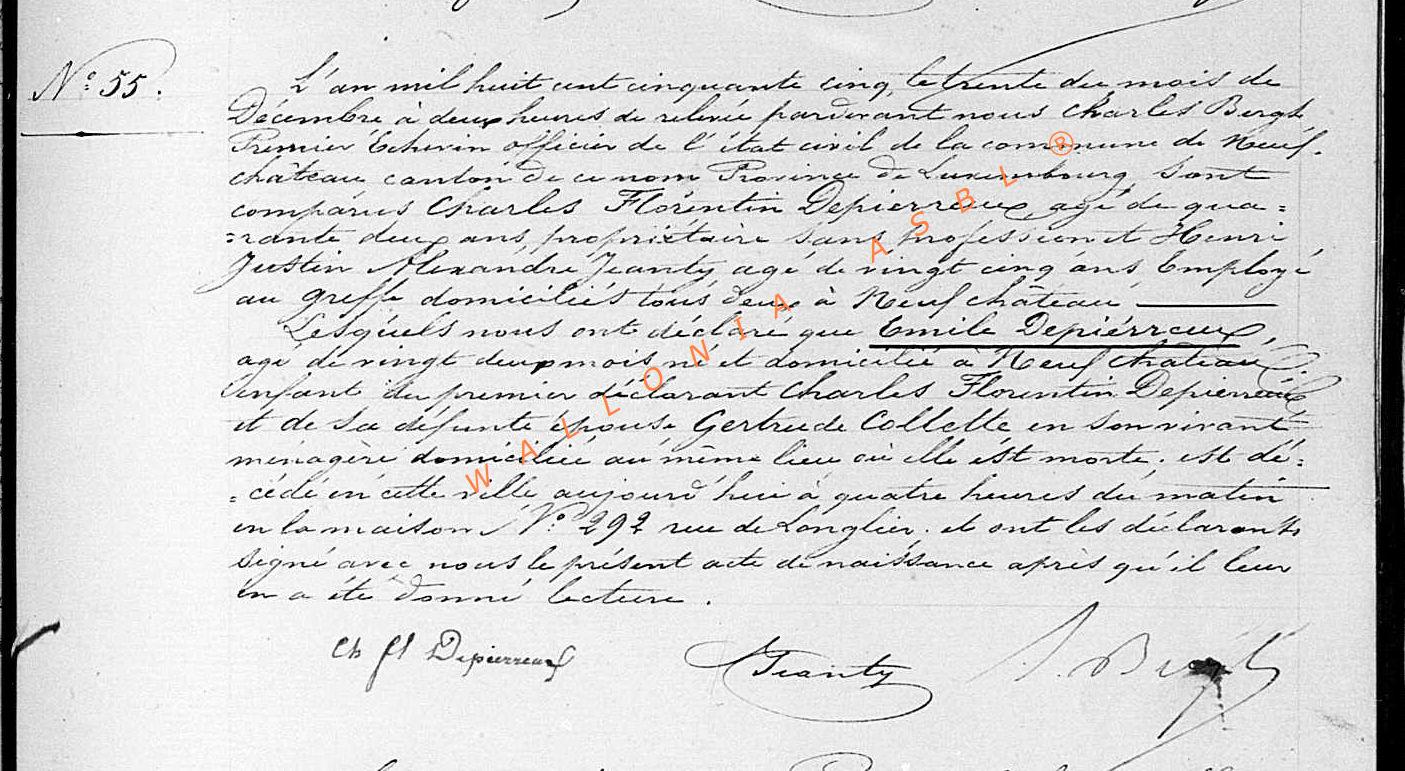 N.° 55.
L'an mil huit cent cinquante cinq, le trente du mois de
Décembre à deux heures de relevée pardevant nous Charles Bergh
Premier Echevin officier de l'état civil de la commune de Neuf-
château canton de ce nom Province de Luxembourg, sont
comparus Charles Florentin Depierreux, agé de qua=
=rante deux ans, propriétaire sans profession et Henri
Justin Alexandre Jeanty agé de vingt cinq ans Employé
au greffe domiciliés tous deux à Neufchâteau
Lesquels nous ont déclaré que Emile Depiérreux,
agé de vingt deux mois né et domicilié à Neufchâteau,
enfant du premier déclarant Charles Florentin Depierreux
et de sa défunte épouse Gertrude Collette en son vivant
ménagère domiciliée au même lieu où elle est morte, est dé=
=cédé en cette ville aujourd'hui à quatre heures du matin
en la maison N.° 292 rue de Longlier, et ont les déclarants
signé avec nous le présent acte de naissance après qu'il leur
en a été donné lecture.
Ch fl Depierreux
Jeanty
WALLONIA ASBL ®